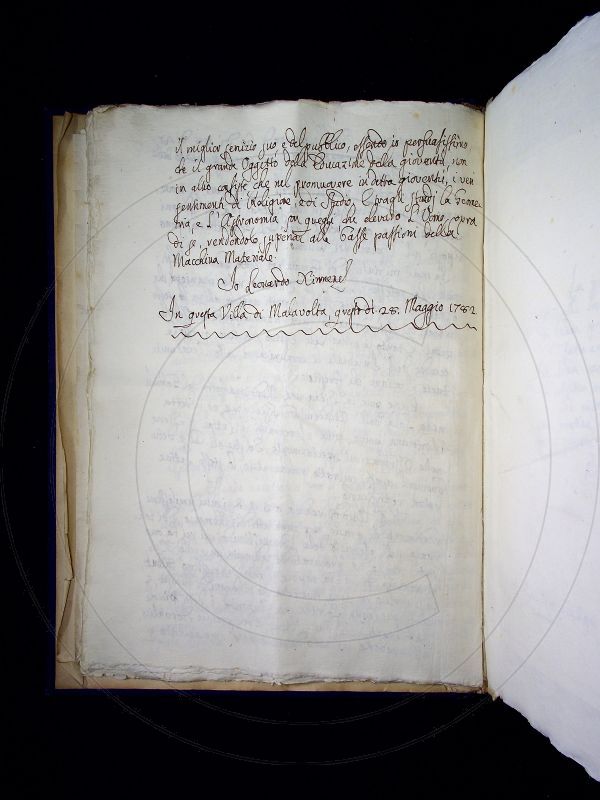 il miglior servizio suo e del pubblico, essendo io persuasissimo
che il grande Oggetto della Educazione della gioventù, non
in altro consiste che nel promuovere in detta gioventù, i veri
sentimenti di Religione, e di Studio, e fragli Studj la Geome
tria, e L'Astronomia son quegli che elevano L'Uomo, sopra
di se, rendendolo superior alle basse passioni della
Macchina Materiale.
Io Leonardo Ximenes
In questa Villa di Malavolta, questo dì 28. Maggio 1782